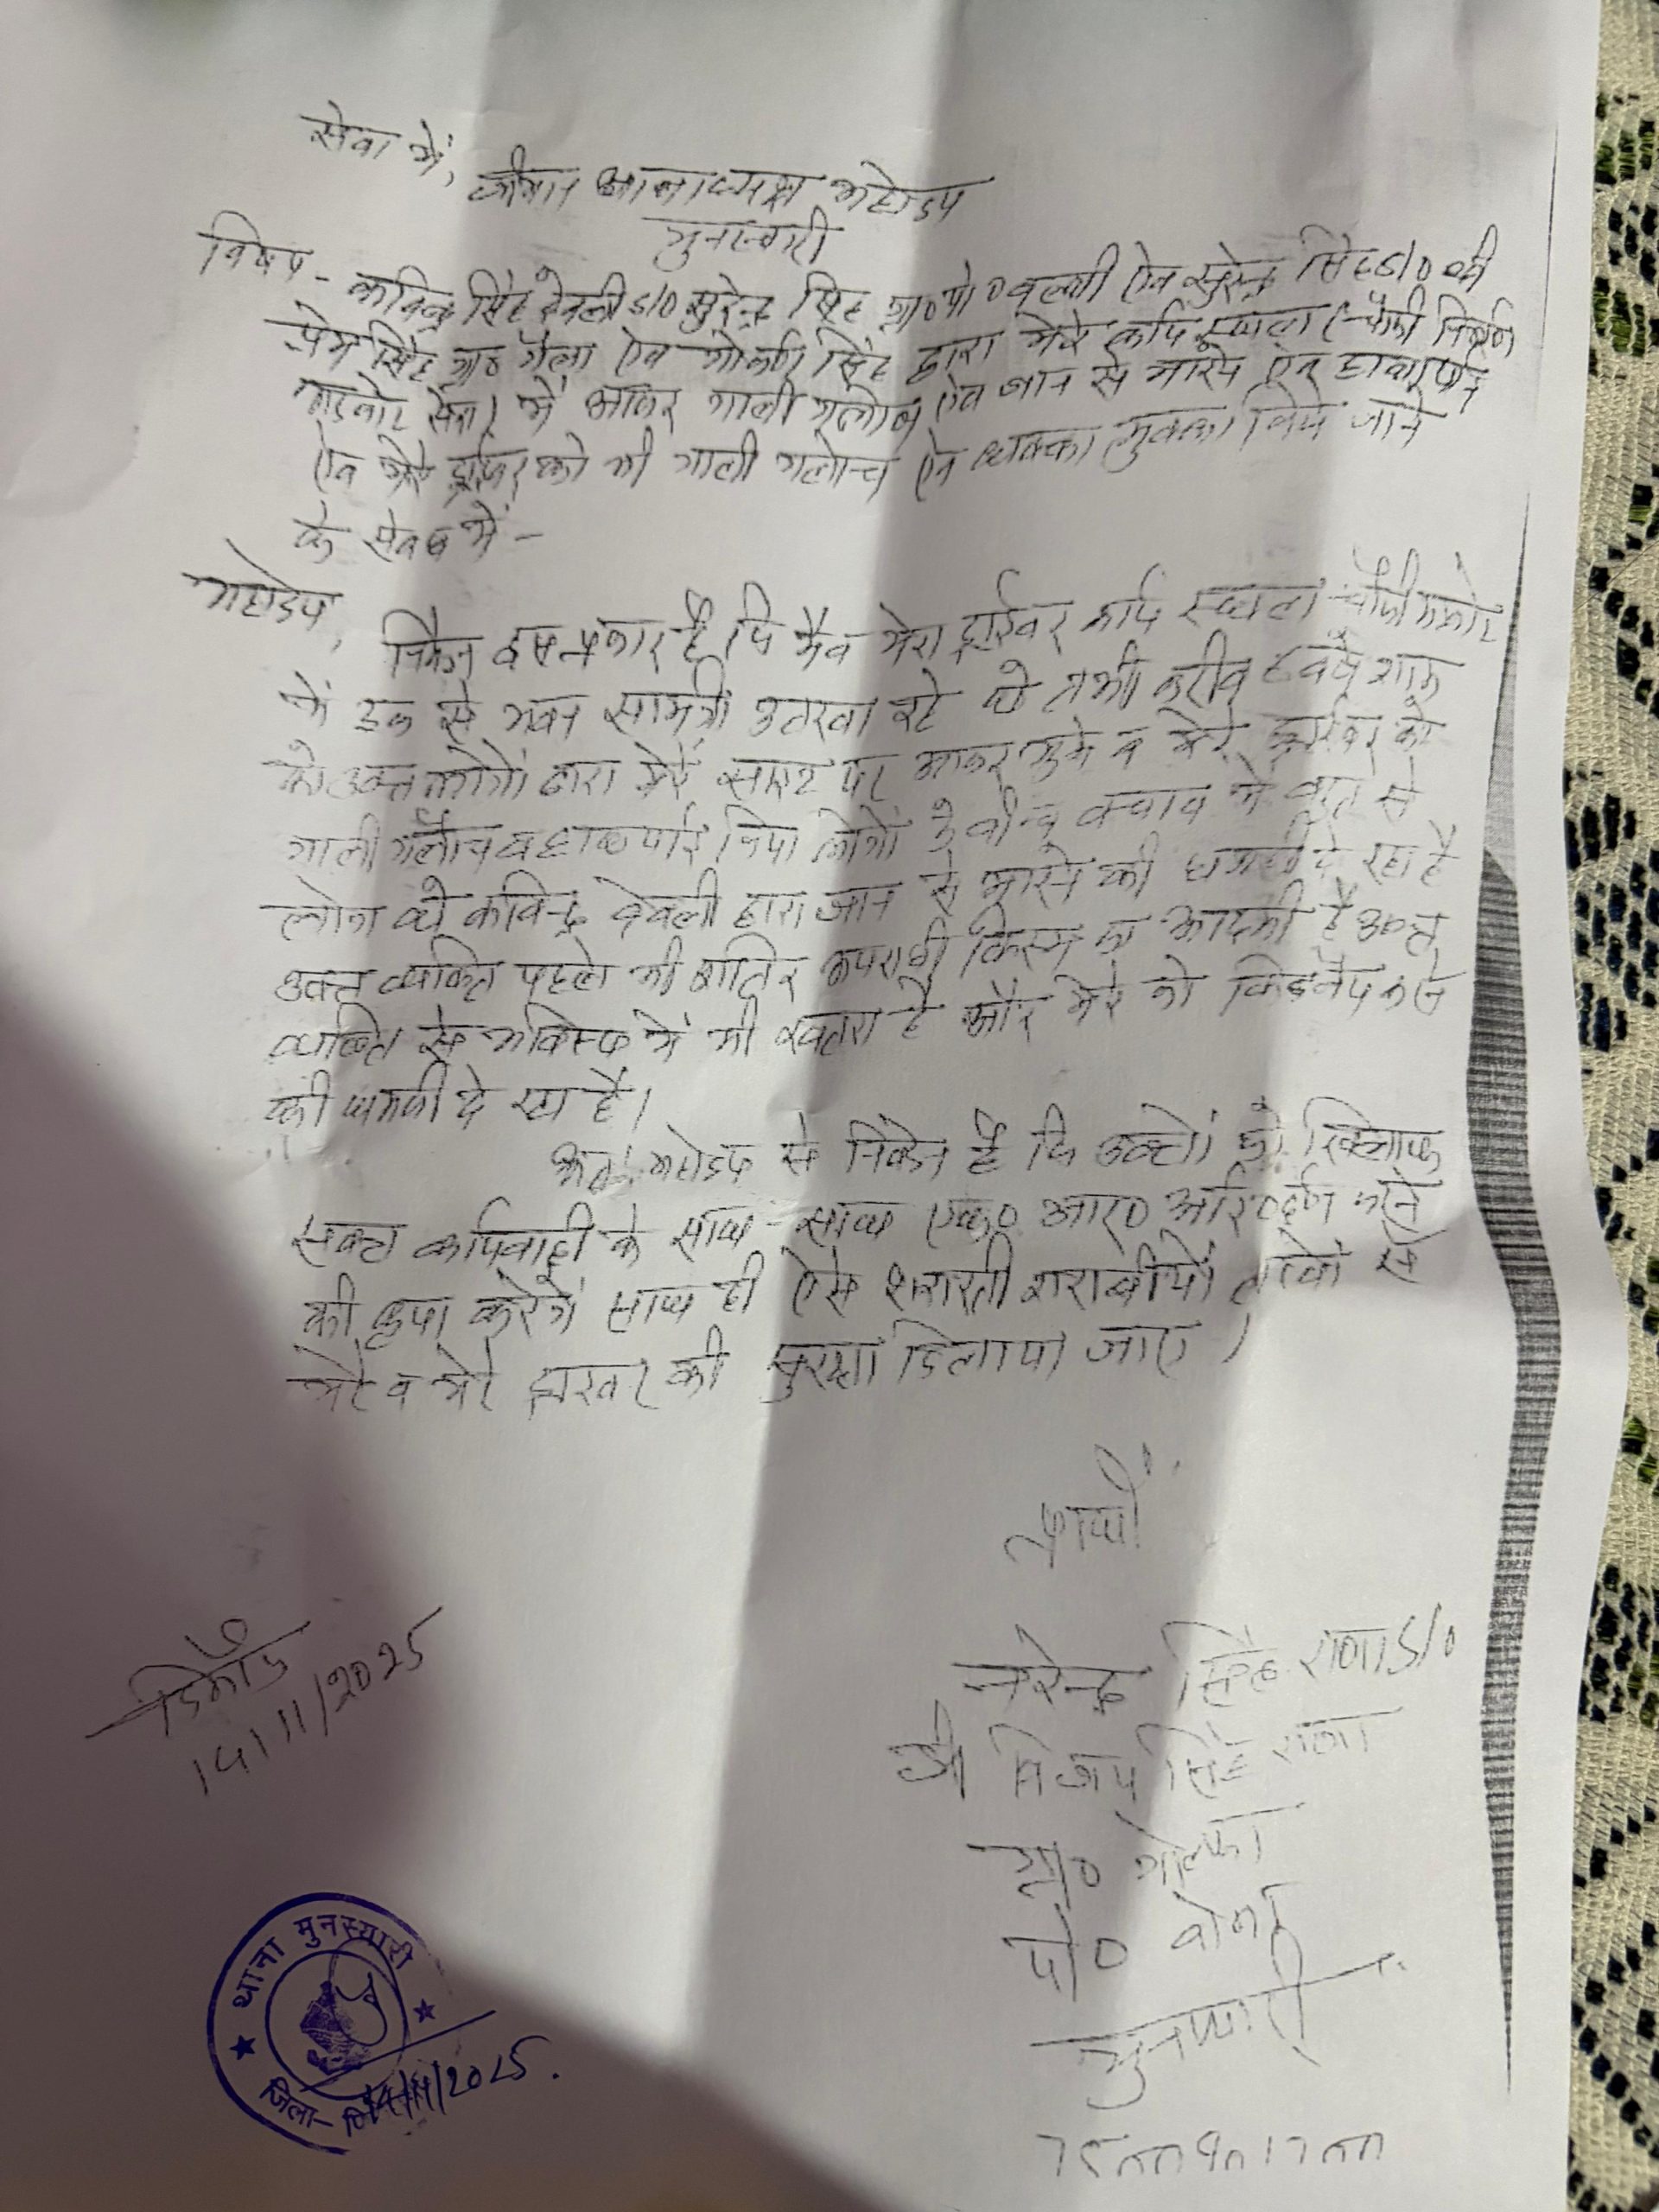 सेवा में,
श्रीमान थानाध्यक्ष महोदय
मुनस्यारी
विषय - कविन्द्र सिंह देवली S/O सुरेन्द्र सिंह ग्रा० पो० वल्थी ऐव सुरेन्द्र सिंह S/O श्री
प्रेम सिंह ग्रा० गैला ऐव गोकर्ण सिंह द्वारा मेरे कार्य स्थल (चौकी
में आकर गाली गलौच ऐव जान से मारने ऐव हाथापाई
ऐव मेरे ड्राईवर को भी गाली गलौच ऐव धक्का मुक्का किये जाने
के संबंध में -
महोदय,
निवेदन इस प्रकार है कि मै व मेरा ड्राईवर कार्य स्थल चौकी
में ट्रक से भवन सामग्री उतरवा रहे थे तभी करीब 8 बजे शाम
को उक्त लोगों द्वारा मेरे साइट पर आकर मुझे व मेरे ड्राईवर को
गाली गलौच व हाथापाई किया लोगों के बीच बचाव में बहुत से
लोग थे कविन्द्र देवली द्वारा जान से मारने की धमकी दे रहा है
उक्त व्यक्ति पहले भी शातिर अपराधी किस्म का आदमी है उक्त
व्यक्ति से भविष्य में भी खतरा है और मेरे को किडनैप करने
की धमकी दे रहा है।
अतः महोदय से निवेदन है कि उक्तों के खिलाफ
सख्त कार्यवाही के साथ-साथ एफ० आर० आई० दर्ज करने
की कृपा करेंगे साथ ही ऐसे शरारती शराबीयों लोगों से
मेरे व मेरे ड्राइवर की सुरक्षा दिलाया जाए।
प्रार्थी
नरेन्द्र सिंह राणा S/O
श्री विजय सिंह राणा
ग्रा० गोल्फा
पो० बोना
मुनस्यारी
दिनाँक
14/11/2025
थाना मुनस्यारी
जिला-
14/11/2025.